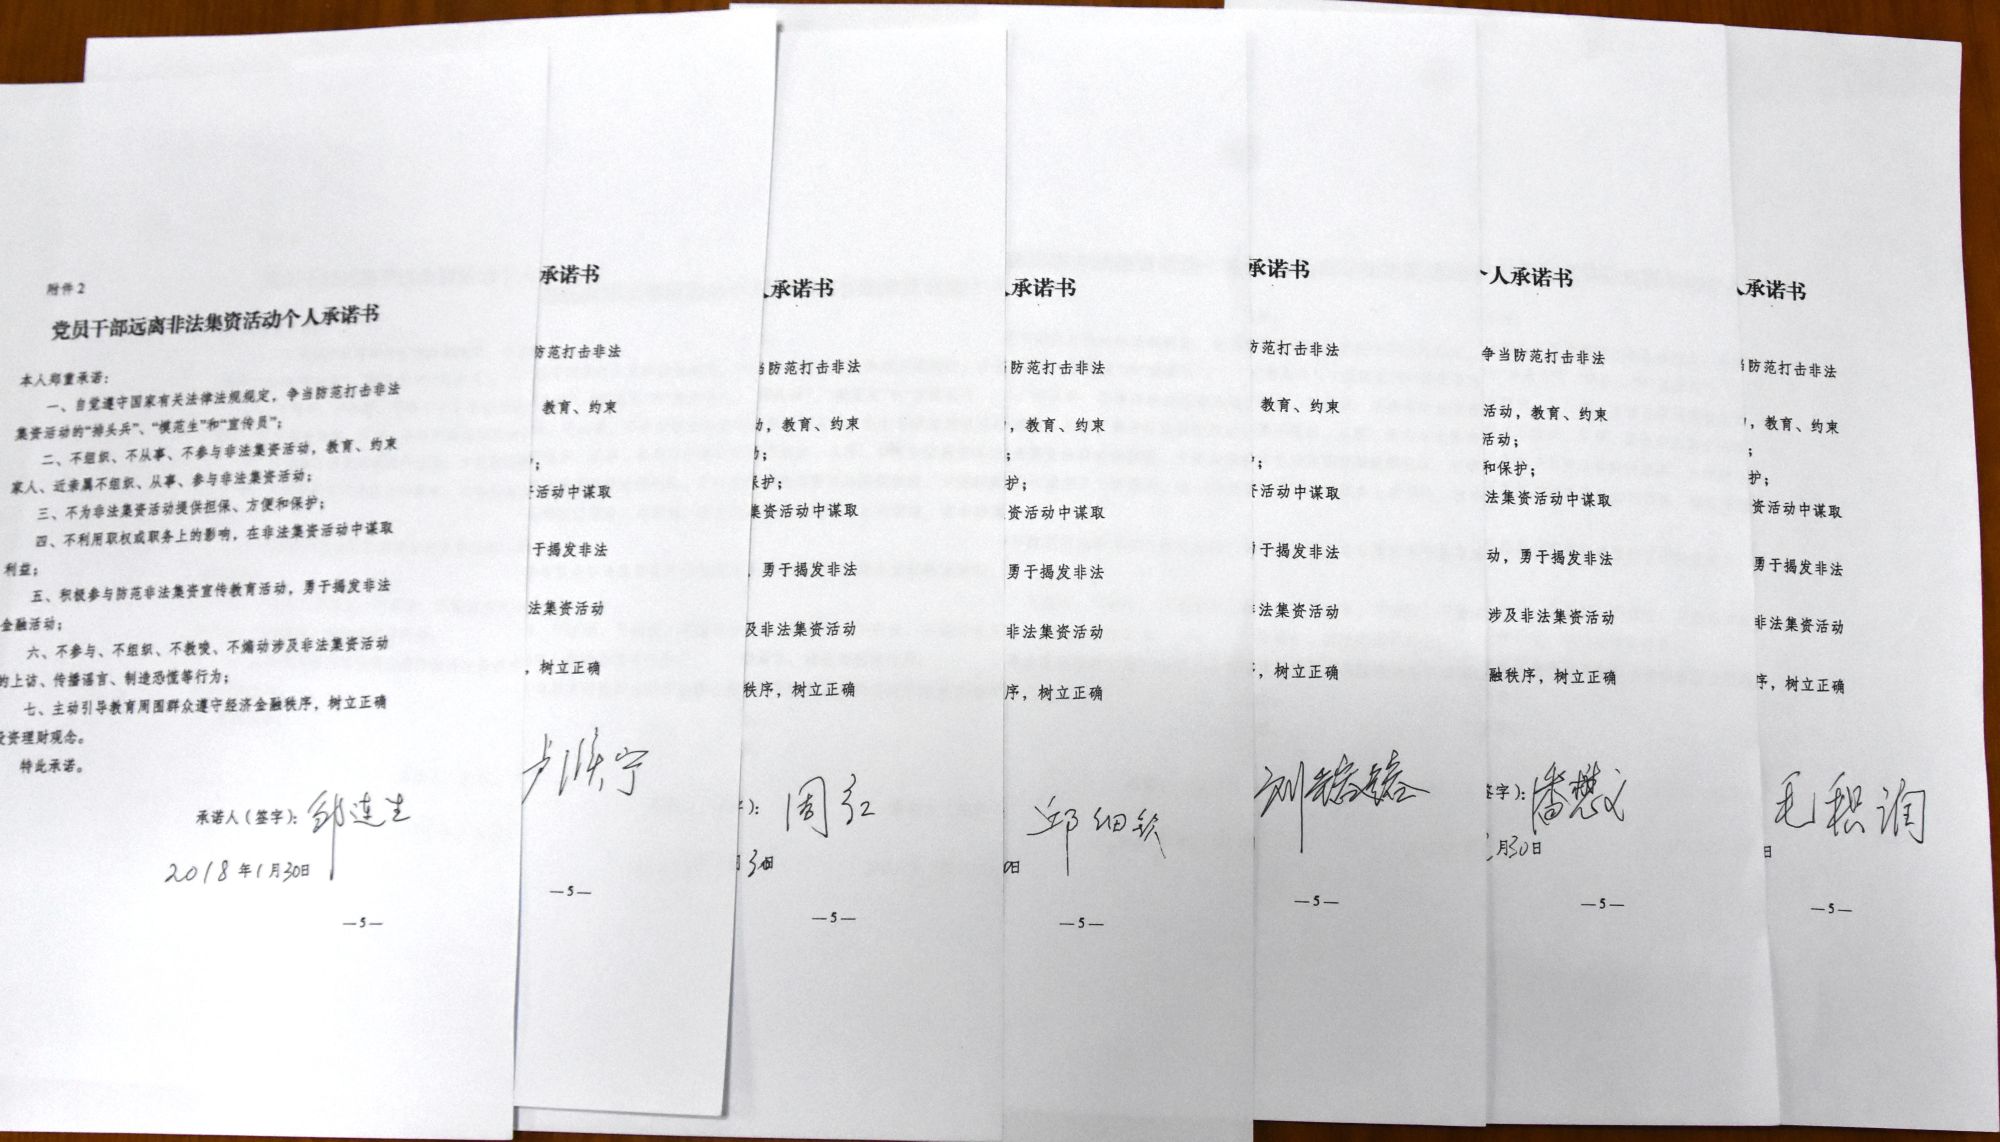 附件2
党员干部远离非法集资活动个人承诺书
本人郑重承诺：
一、自觉遵守国家有关法律法规规定，争当防范打击非法
集资活动的“排头兵”、“模范生”和“宣传员”；
二、不组织、不从事、不参与非法集资活动，教育、约束
家人、近亲属不组织、从事、参与非法集资活动；
三、不为非法集资活动提供担保、方便和保护；
四、不利用职权或职务上的影响，在非法集资活动中谋取
利益；
五、积极参与防范非法集资宣传教育活动，勇于揭发非法
金融活动；
六、不参与、不组织、不教唆、不煽动涉及非法集资活动
的上访、传播谣言、制造恐慌等行为；
七、主动引导教育周围群众遵守经济金融秩序，树立正确
投资理财观念。
特此承诺。
承诺人（签字）：邹连生
2018年1月30日
—5—
承诺书
防范打击非法
教育、约束
；
活动中谋取
于揭发非法
法集资活动
，树立正确
—5—
人承诺书
当防范打击非法
动，教育、约束
动；
保护；
集资活动中谋取
，勇于揭发非法
及非法集资活动
秩序，树立正确
）：周红
30日
—5—
人承诺书
防范打击非法
，教育、约束
；
护；
资活动中谋取
勇于揭发非法
非法集资活动
序，树立正确
邱细
0日
—5—
承诺书
防范打击非法
教育、约束
；
活动中谋取
于揭发非法
法集资活动
，树立正确
刘
—5—
个人承诺书
争当防范打击非法
活动，教育、约束
活动；
和保护；
法集资活动中谋取
动，勇于揭发非法
涉及非法集资活动
融秩序，树立正确
签字）：潘懋文
月30日
—5—
人承诺书
当防范打击非法
，教育、约束
；
护；
资活动中谋取
勇于揭发非法
非法集资活动
序，树立正确
毛积润
日
—5—